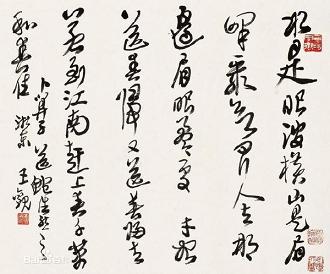 水是眼波横山是眉
峰聚欲问行人去那
邊眉眼盈盈處才始
送春歸又送君歸去
若到江南赶上春千萬
和春住
卜算子送鲍浩然之
浙東王觀